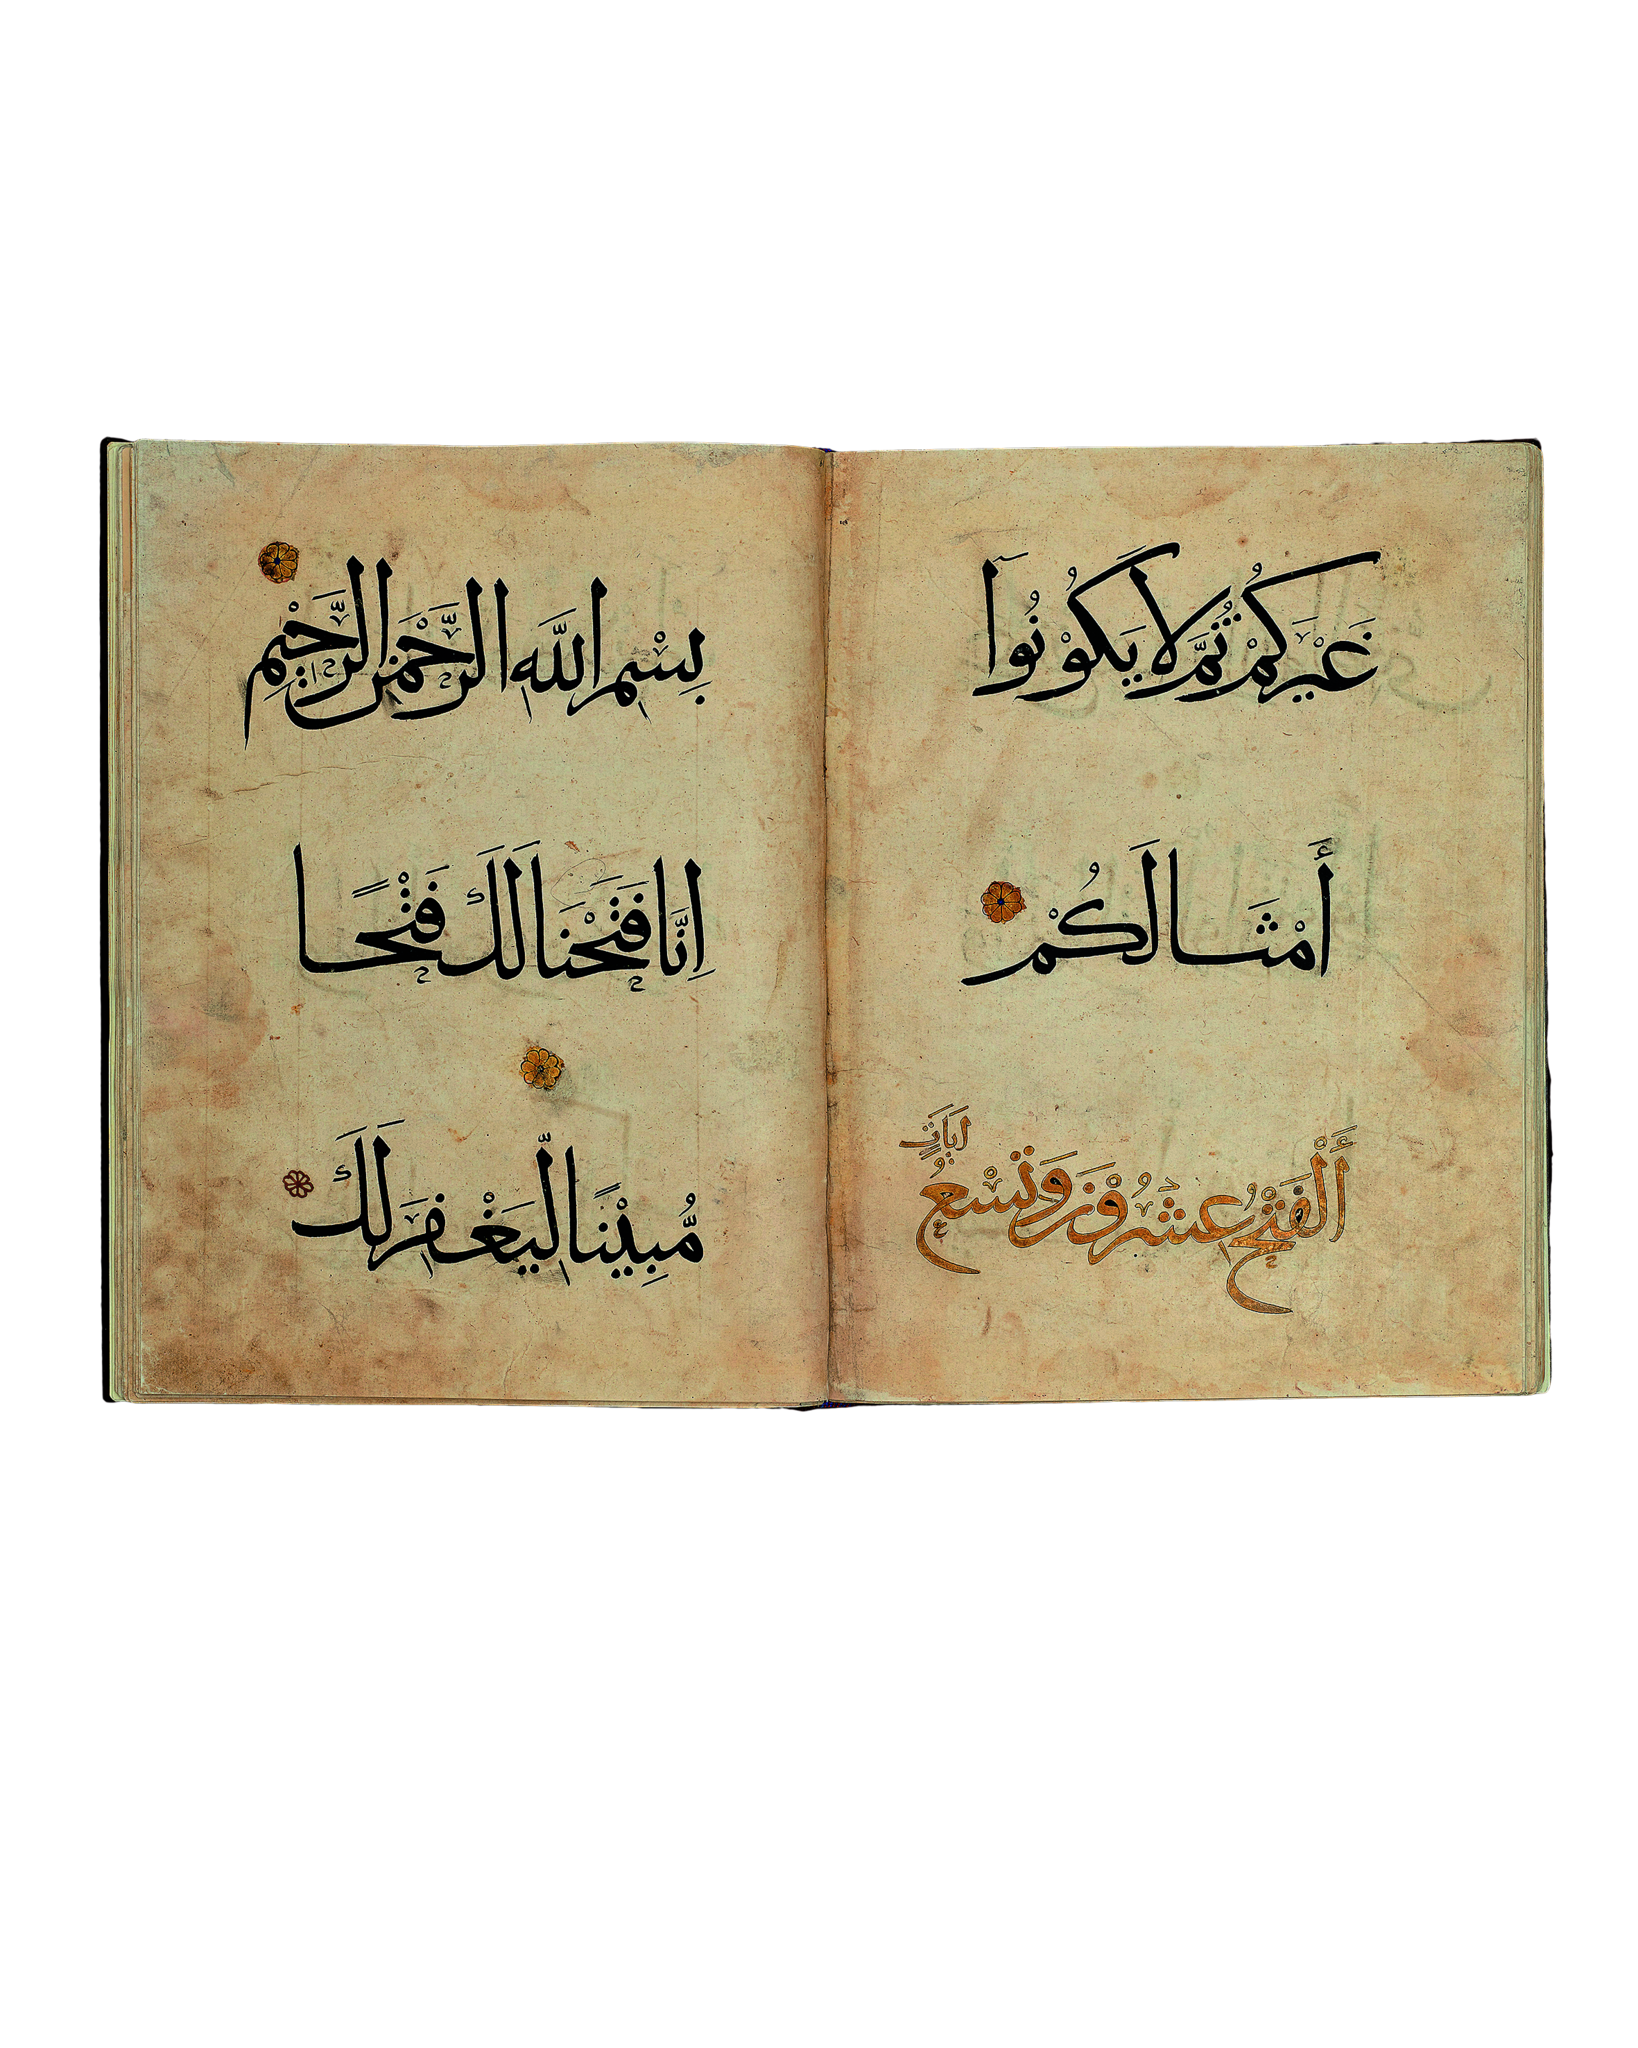 غَيْرَكُمْ ثُمَّ لَا يَكُوْنُوا
أَمْثَالَكُمْ
أَلْفَتْحُ عِشْرُوْنَ وَتِسْعُ ايَاتٍ
بِسْمِ اللَّهِ الرَّحْمَنِ الرَّحِيْمِ
اِنَّا فَتَحْنَا لَكَ فَتْحًا
مُّبِيْنًا لِّيَغْفِرَ لَكَ